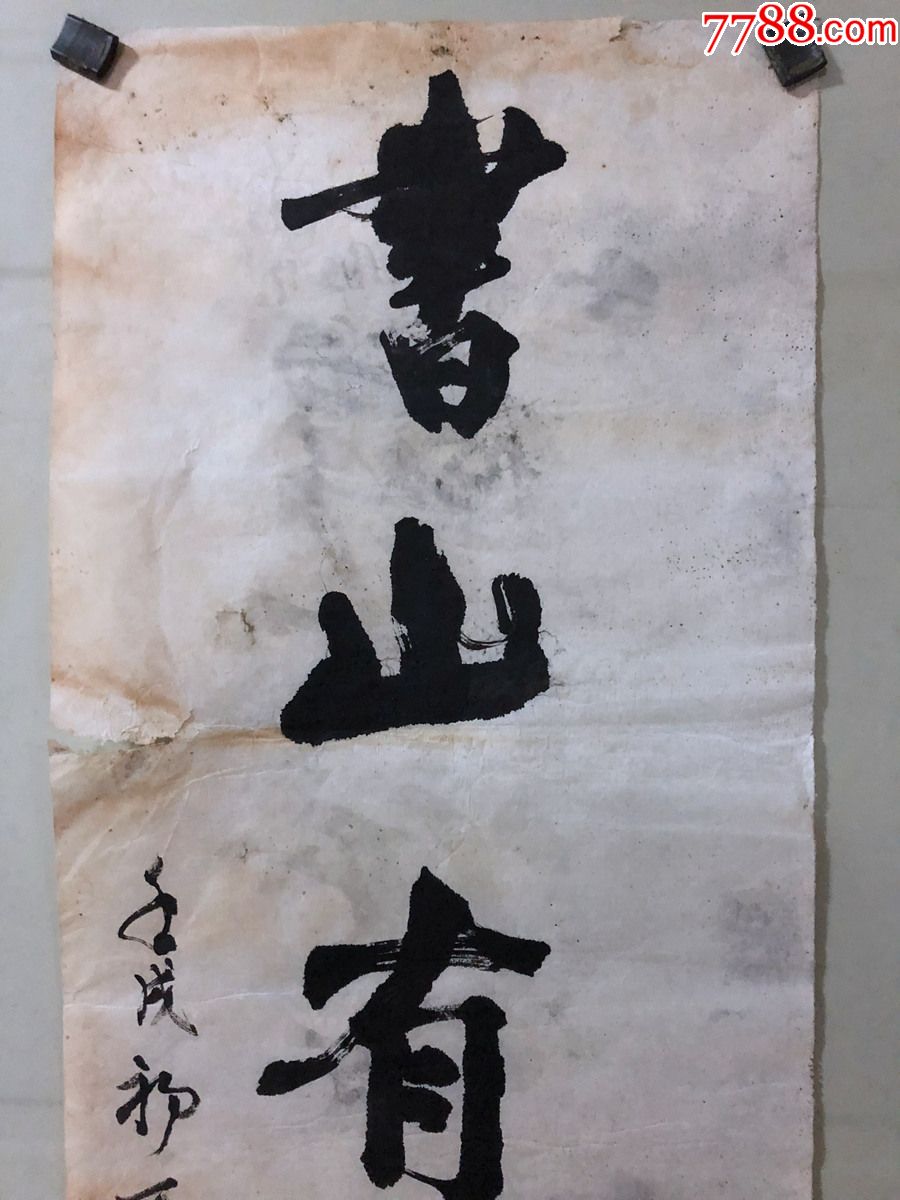 7788.com
書山有
壬戌初